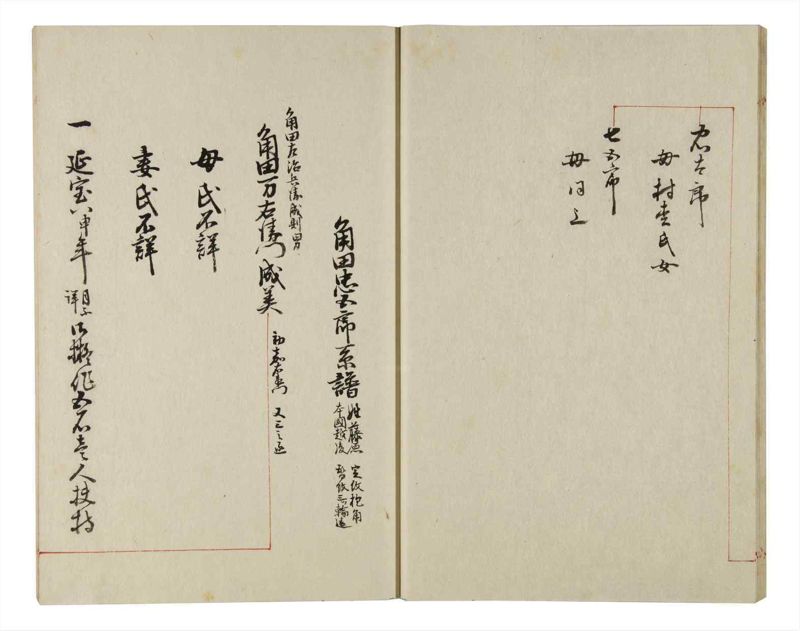 母村𡈽氏女
母同上
角田忠五郎系譜
姓藤原
本國越後
定紋抱角
替紋三輪違
角田左治兵衛成則男
角田万右衛門成美
初嘉右衛門 又三之丞
母氏不詳
妻氏不詳
一 延宝八申年 月不詳 御擬作五石壱人扶持